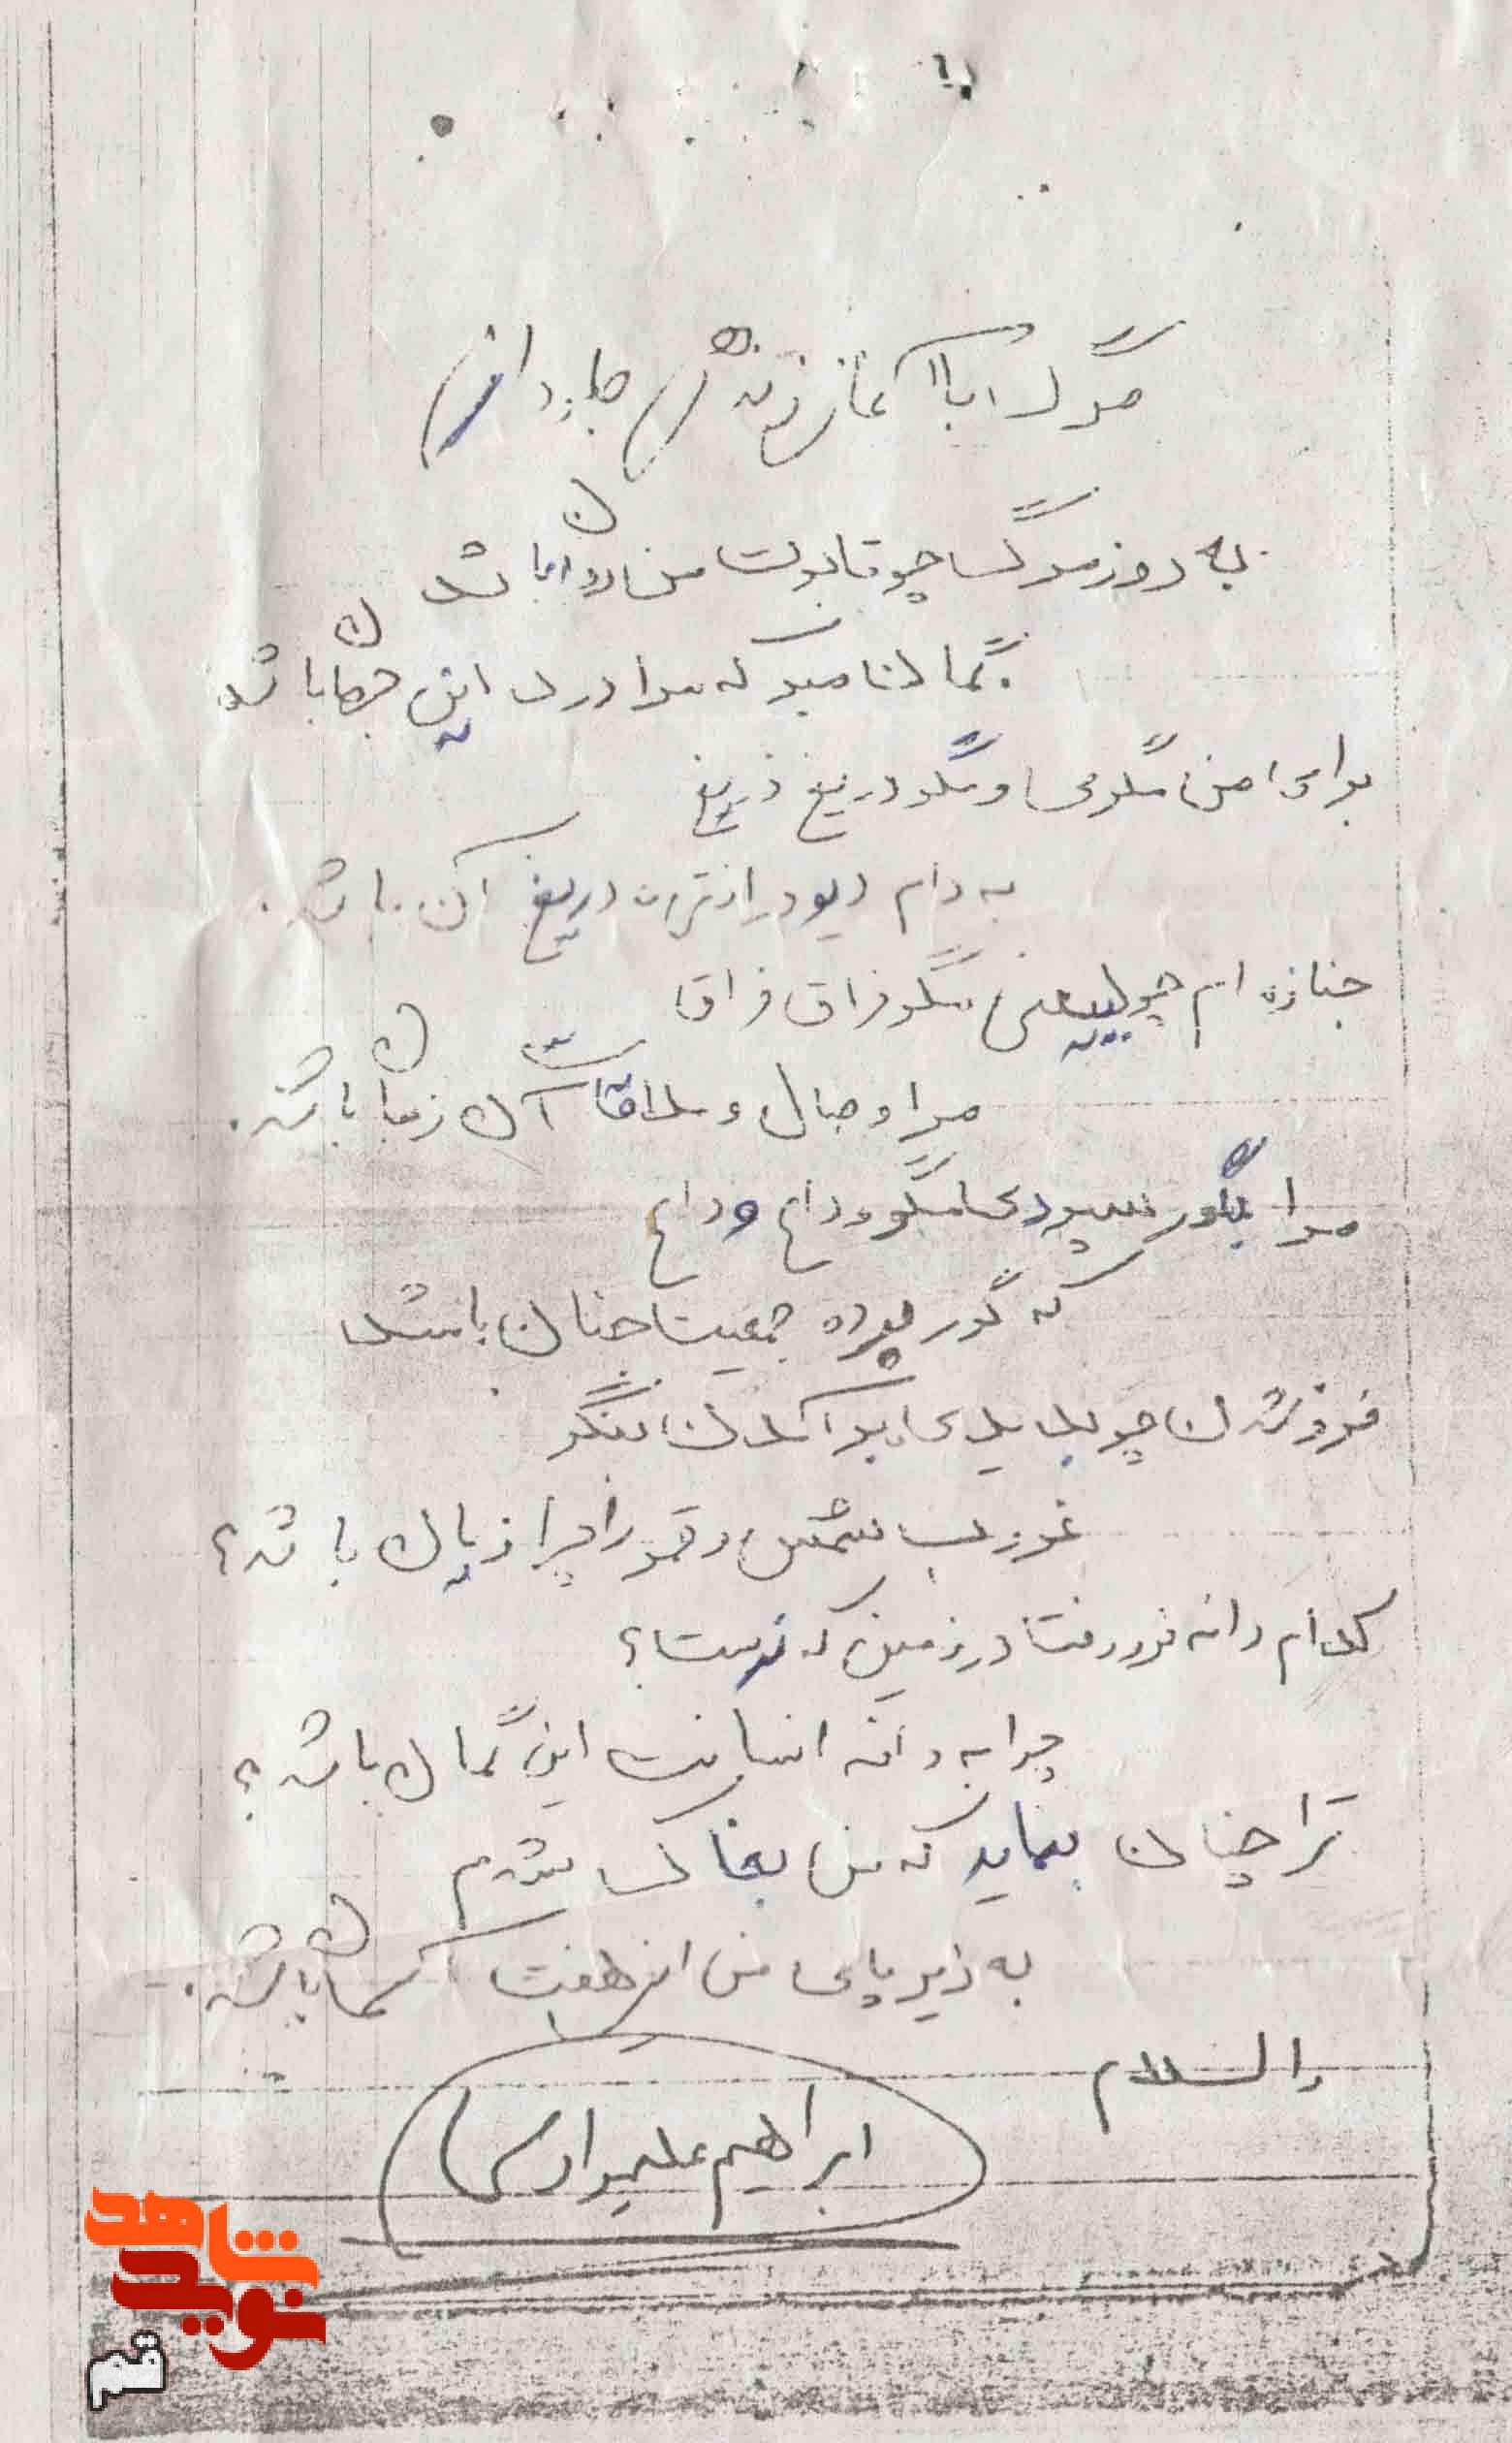 مرگ ابا آغاز زندگی جاودانی
به روز مرگ چو تابوت من روان باشد
گمان مبر که مرا درد این جهان باشد
برای من مگری و مگو دریغ دریغ
به دام دیو در افتی دریغ آن باشد.
جنازه ام چو ببینی مگو فراق فراق
مرا وصال و ملاقات آن زمان باشد.
مرا بگور سپردی مگو وداع وداع
که گور پرده جمعیت جنان باشد
فرو شدن چو بدیدی بر آمدن بنگر
غروب شمس و قمر را چرا زیان باشد؟
کدام دانه فرو رفت در زمین که نرست؟
چرا به دانه انسانت این گمان باشد؟
ترا چنان بماید که من بخاک شدم
به زیر پای من از هفت آسمان باشد.
والسلام
ابراهیم علیمرادی
شاهد
نوید
قم